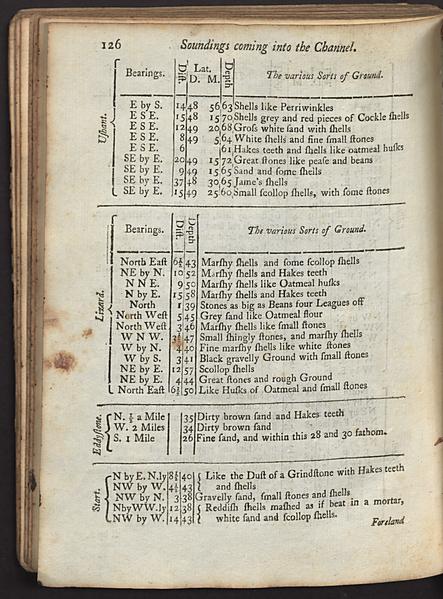 126 Soundings coming into the Channel.
Ushant.
Bearings. Dist. Lat. D. M. Depth The various Sorts of Ground.
E by S. 14 48 56 63 Shells like Perriwinkles
E S E. 15 48 15 70 Shells grey and red pieces of Cockle ſhells
E S E. 12 49 20 68 Groſs white ſand with ſhells
E S E. 8 49 5 64 White ſhells and fine ſmall ſtones
E S E. 6 61 Hakes teeth and ſhells like oatmeal huſks
SE by E. 20 49 15 72 Great ſtones like peaſe and beans
SE by E. 9 49 15 65 Sand and ſome ſhells
SE by E. 37 48 30 65 Jame's ſhells
SE by E. 15 49 25 60 Small ſcollop ſhells, with ſome ſtones
Lizard.
Bearings. Dist. Depth The various Sorts of Ground.
North Eaſt 6½ 43 Marſhy ſhells and ſome ſcollop ſhells
NE by N. 10 52 Marſhy ſhells and Hakes teeth
N N E. 9 50 Marſhy ſhells like Oatmeal huſks
N by E. 15 58 Marſhy ſhells and Hakes teeth
North 1 39 Stones as big as Beans four Leagues off
North Weſt 5 45 Grey ſand like Oatmeal flour
North Weſt 3 46 Marſhy ſhells like ſmall ſtones
W N W. 47 Small ſhingly ſtones, and marſhy ſhells
W by N. 4 40 Fine marſhy ſhells like white ſtones
W by S. 3 41 Black gravelly Ground with ſmall ſtones
NE by E. 12 57 Scollop ſhells
NE by E. 4 44 Great ſtones and rough Ground
North Eaſt 6½ 50 Like Huſks of Oatmeal and ſmall ſtones
Eddyſtone.
N. ½ a Mile 35 Dirty brown ſand and Hakes teeth
W. 2 Miles 34 Dirty brown ſand
S. 1 Mile 26 Fine ſand, and within this 28 and 30 fathom.
Start.
N by E. N.ly 8½ 40 Like the Duſt of a Grindſtone with Hakes teeth
NW by W. 4½ 43 and ſhells
NW by N. 3 38 Gravelly ſand, ſmall ſtones and ſhells
NbyWW.ly 12 38 Reddiſh ſhells maſhed as if beat in a mortar,
NW by W. 14 43 white ſand and ſcollop ſhells.
Foreland